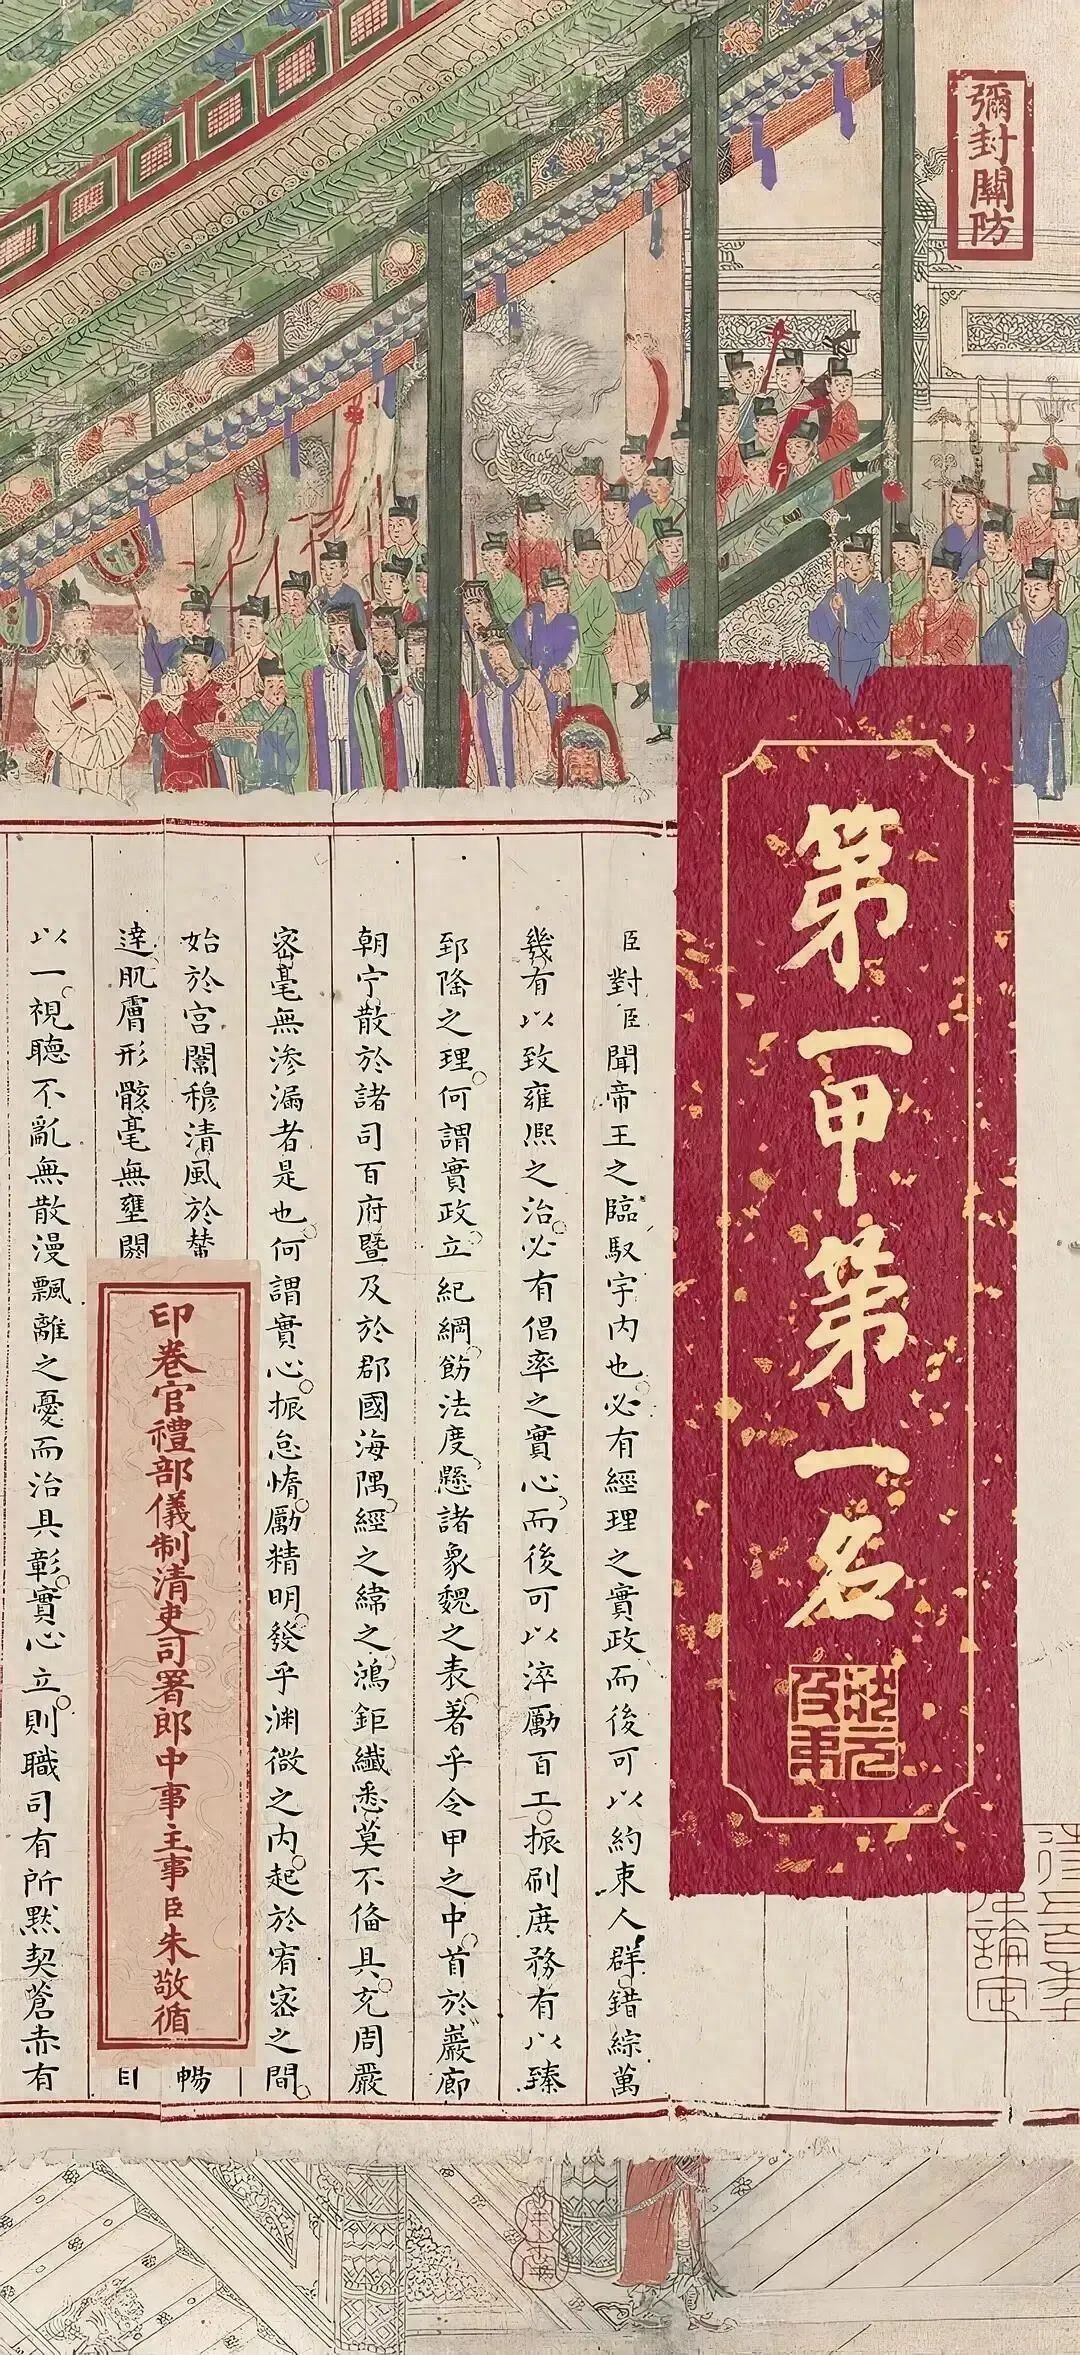 彌封關防
第一甲第一名
狀元及第
臣對臣聞帝王之臨馭宇内也必有經理之實政而後可以約束人群錯綜萬
幾有以致雍熙之治必有倡率之實心而後可以淬勵百工振刷庶務有以臻
郅隆之理何謂實政立紀綱飭法度懸諸象魏之表著乎令甲之中首於巖廊
朝宁散於諸司百府暨及於郡國海隅經之緯之鴻鉅纖悉莫不備具充周嚴
密毫無滲漏者是也何謂實心振怠惰勵精明發乎渊微之内起於宥密之間
始於宮闈穆清風於輦
暢
達肌膚形骸毫無壅閼
以一視聽不亂無散漫飄離之憂而治具彰實心立則職司有所默契蒼赤有
印卷官禮部儀制清吏司署郎中事主事臣朱敬循